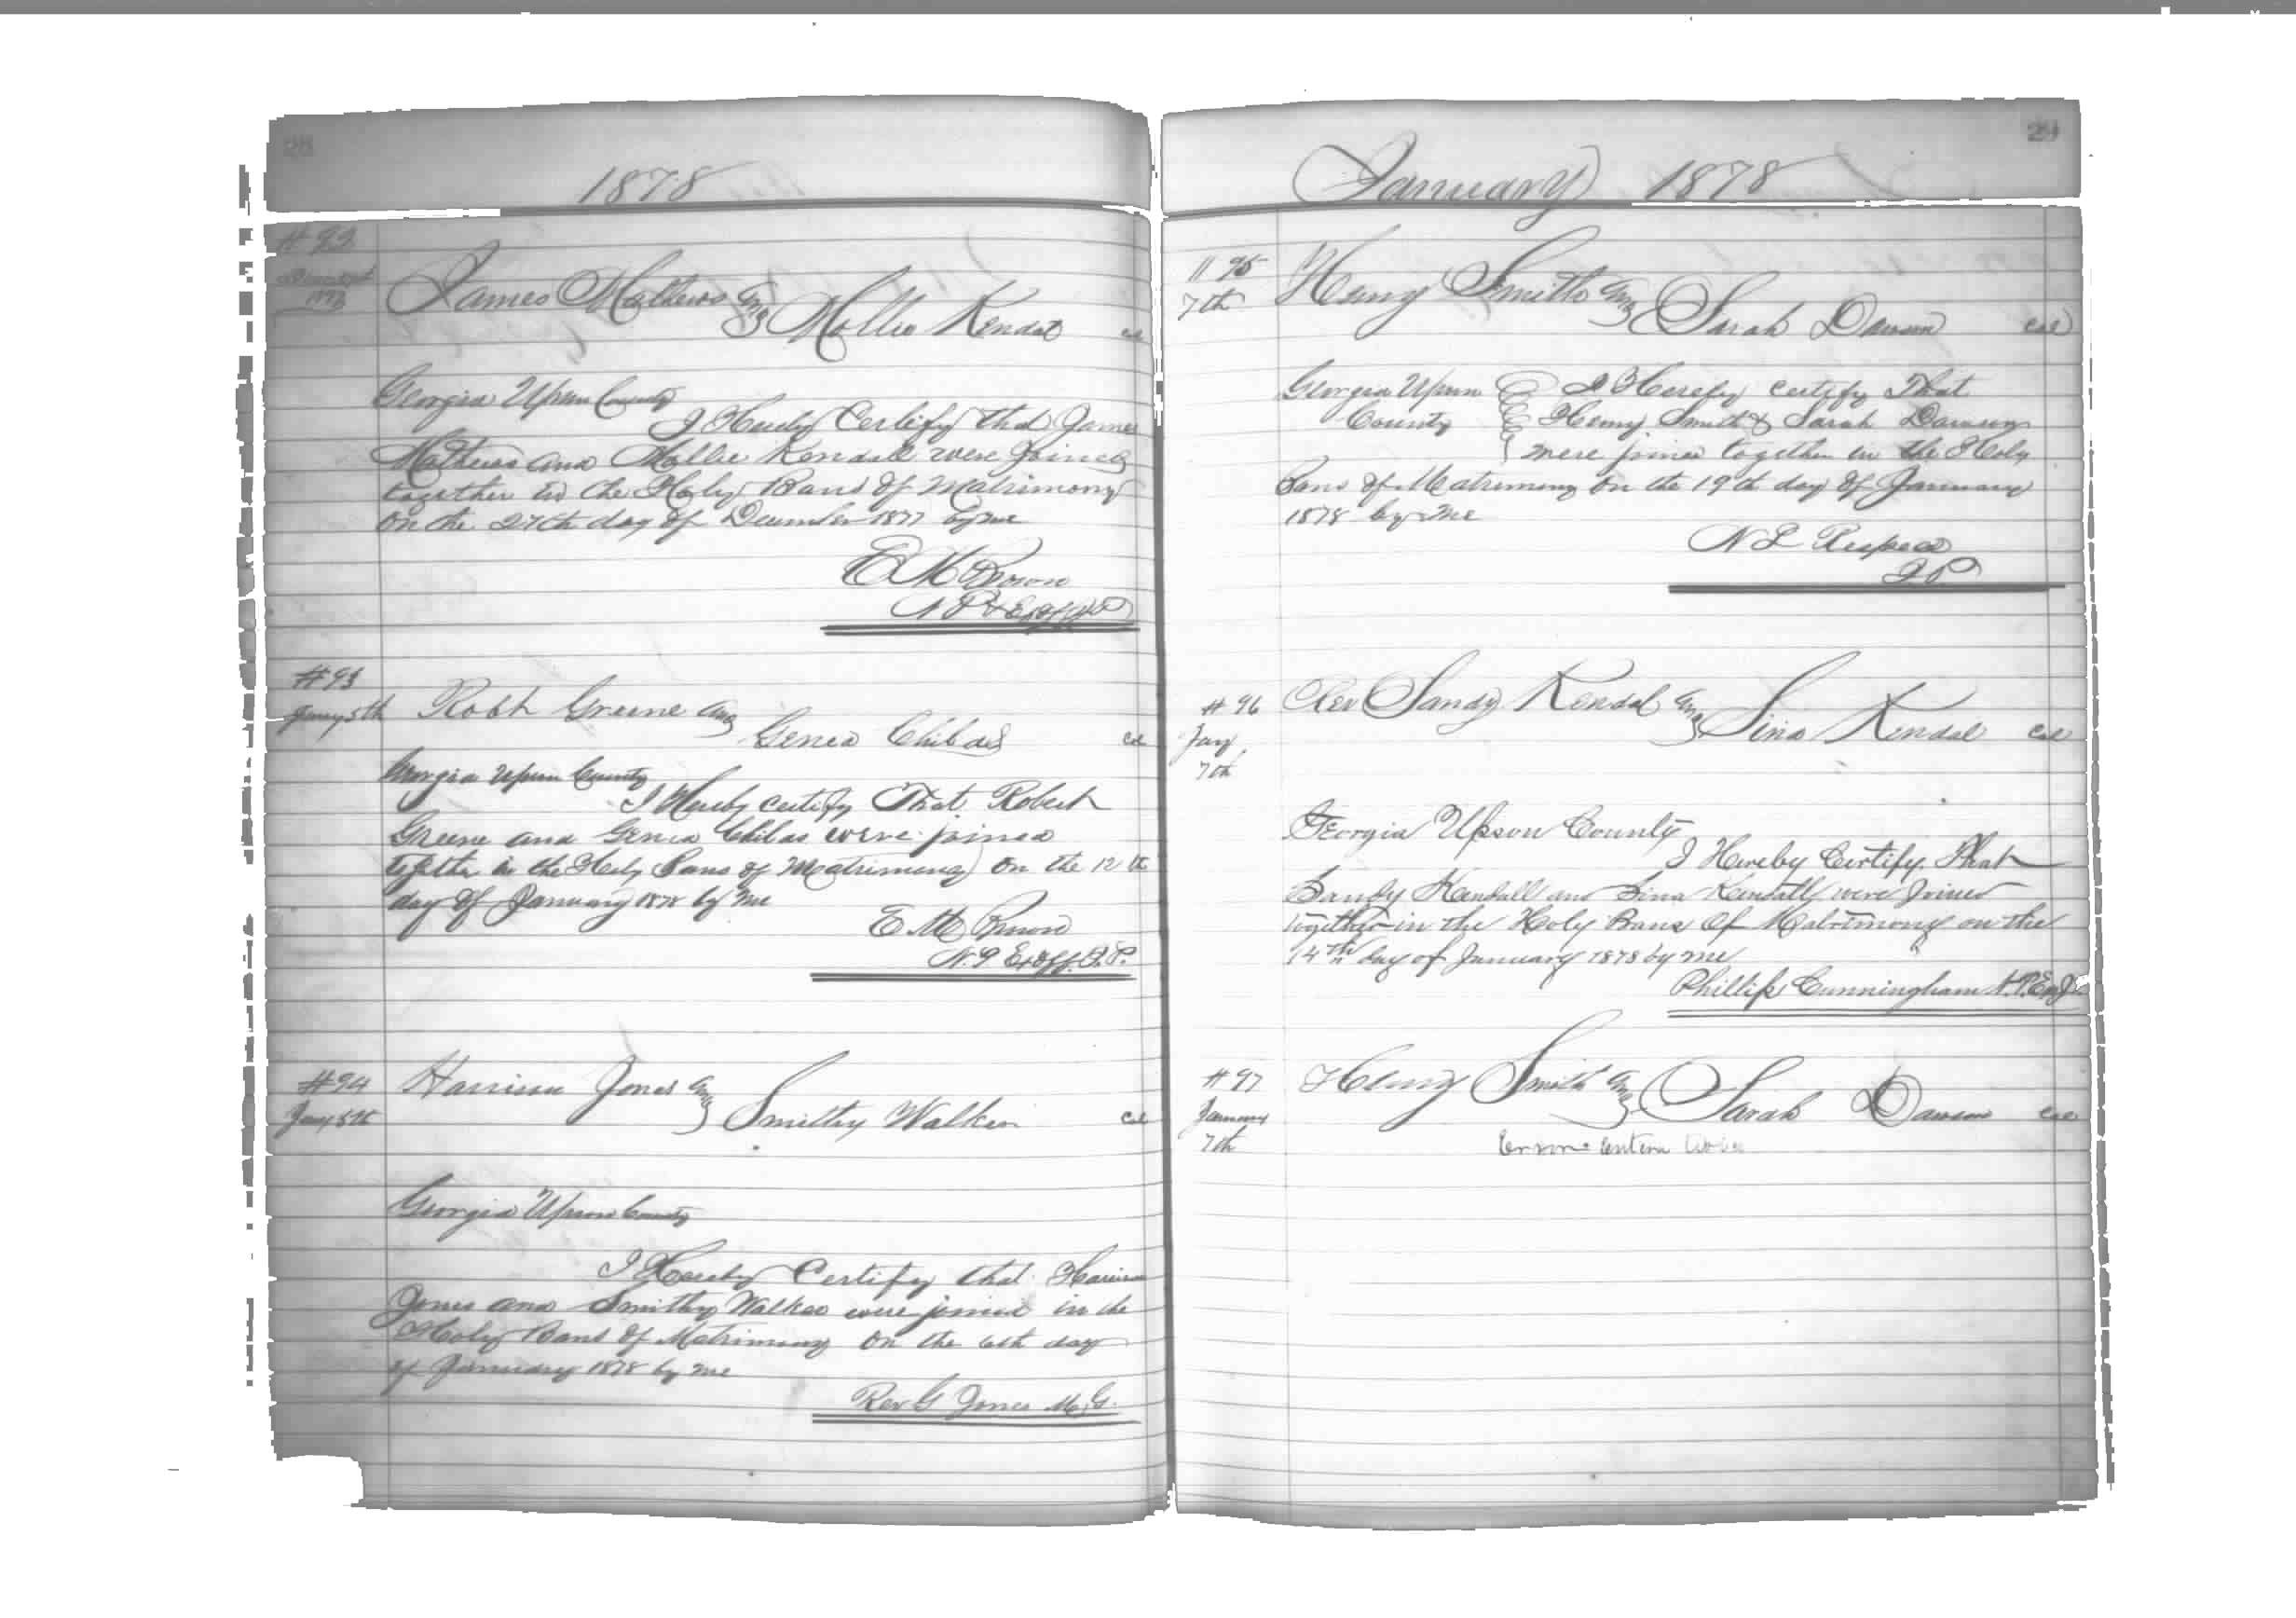 28
1878
#92
James Mathews and
Mollie Kendal Col
Georgia Upson County
I Hereby Certify that James
Mathews and Mollie Kendall were joined
together in the Holy Bans of Matrimony
on the 27th day of December 1877 by me
E M Brown
N P & Ex off J P
#93
Jany 5th
Robt Greene and
Genia Childs Col
Georgia Upson County
I Hereby certify That Robert
Greene and Genia Childs were joined
together in the Holy Bans of Matrimony on the 12th
day of January 1878 by me
E M Brown
N.P Ex off. J.P.
#94
Jany 5th
Harrison Jones and
Smithy Walker Col
Georgia Upson County
I Hereby Certify that Harrison
Jones and Smithy Walker were joined in the
Holy Bans of Matrimony on the 6th day
of January 1878 by me
Rev G Jones M.G.
29
January 1878
# 95
7th
Henry Smith and
Sarah Dawson Col
Georgia Upson I Hereby certify That
County Henry Smith & Sarah Dawson
were joined together in the Holy
Bans of Matrimony on the 19th day of January
1878 by me
N L Respess
J P
# 96
Jany
7th
Rev Sandy Kendal and
Sina Kendal Col
Georgia Upson County
I Hereby Certify That
Sandy Kendall and Sina Kendall were joined
together in the Holy Bans Of Matrimony on the
14th day of January 1878 by me
Phillip Cunningham N.P.
# 97
January
7th
Henry Smith and
Sarah Dawson Col